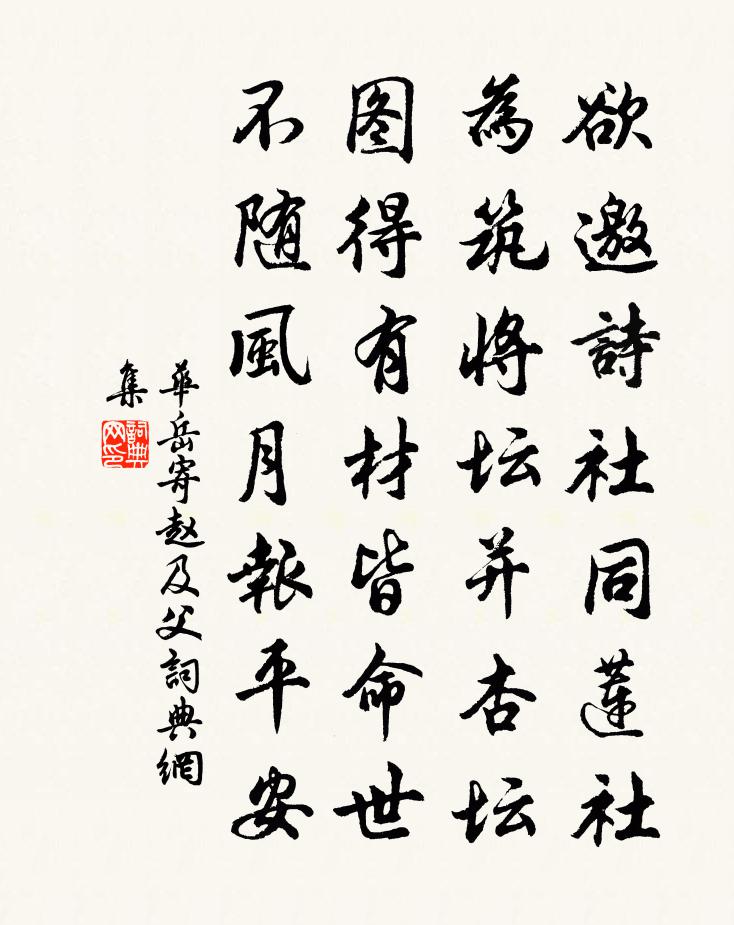 欲邀詩社同蓮社
為筑將坛并杏坛
图得有材皆命世
不随風月報平安
華岳寄赵及父詞典網
集
詞典网印